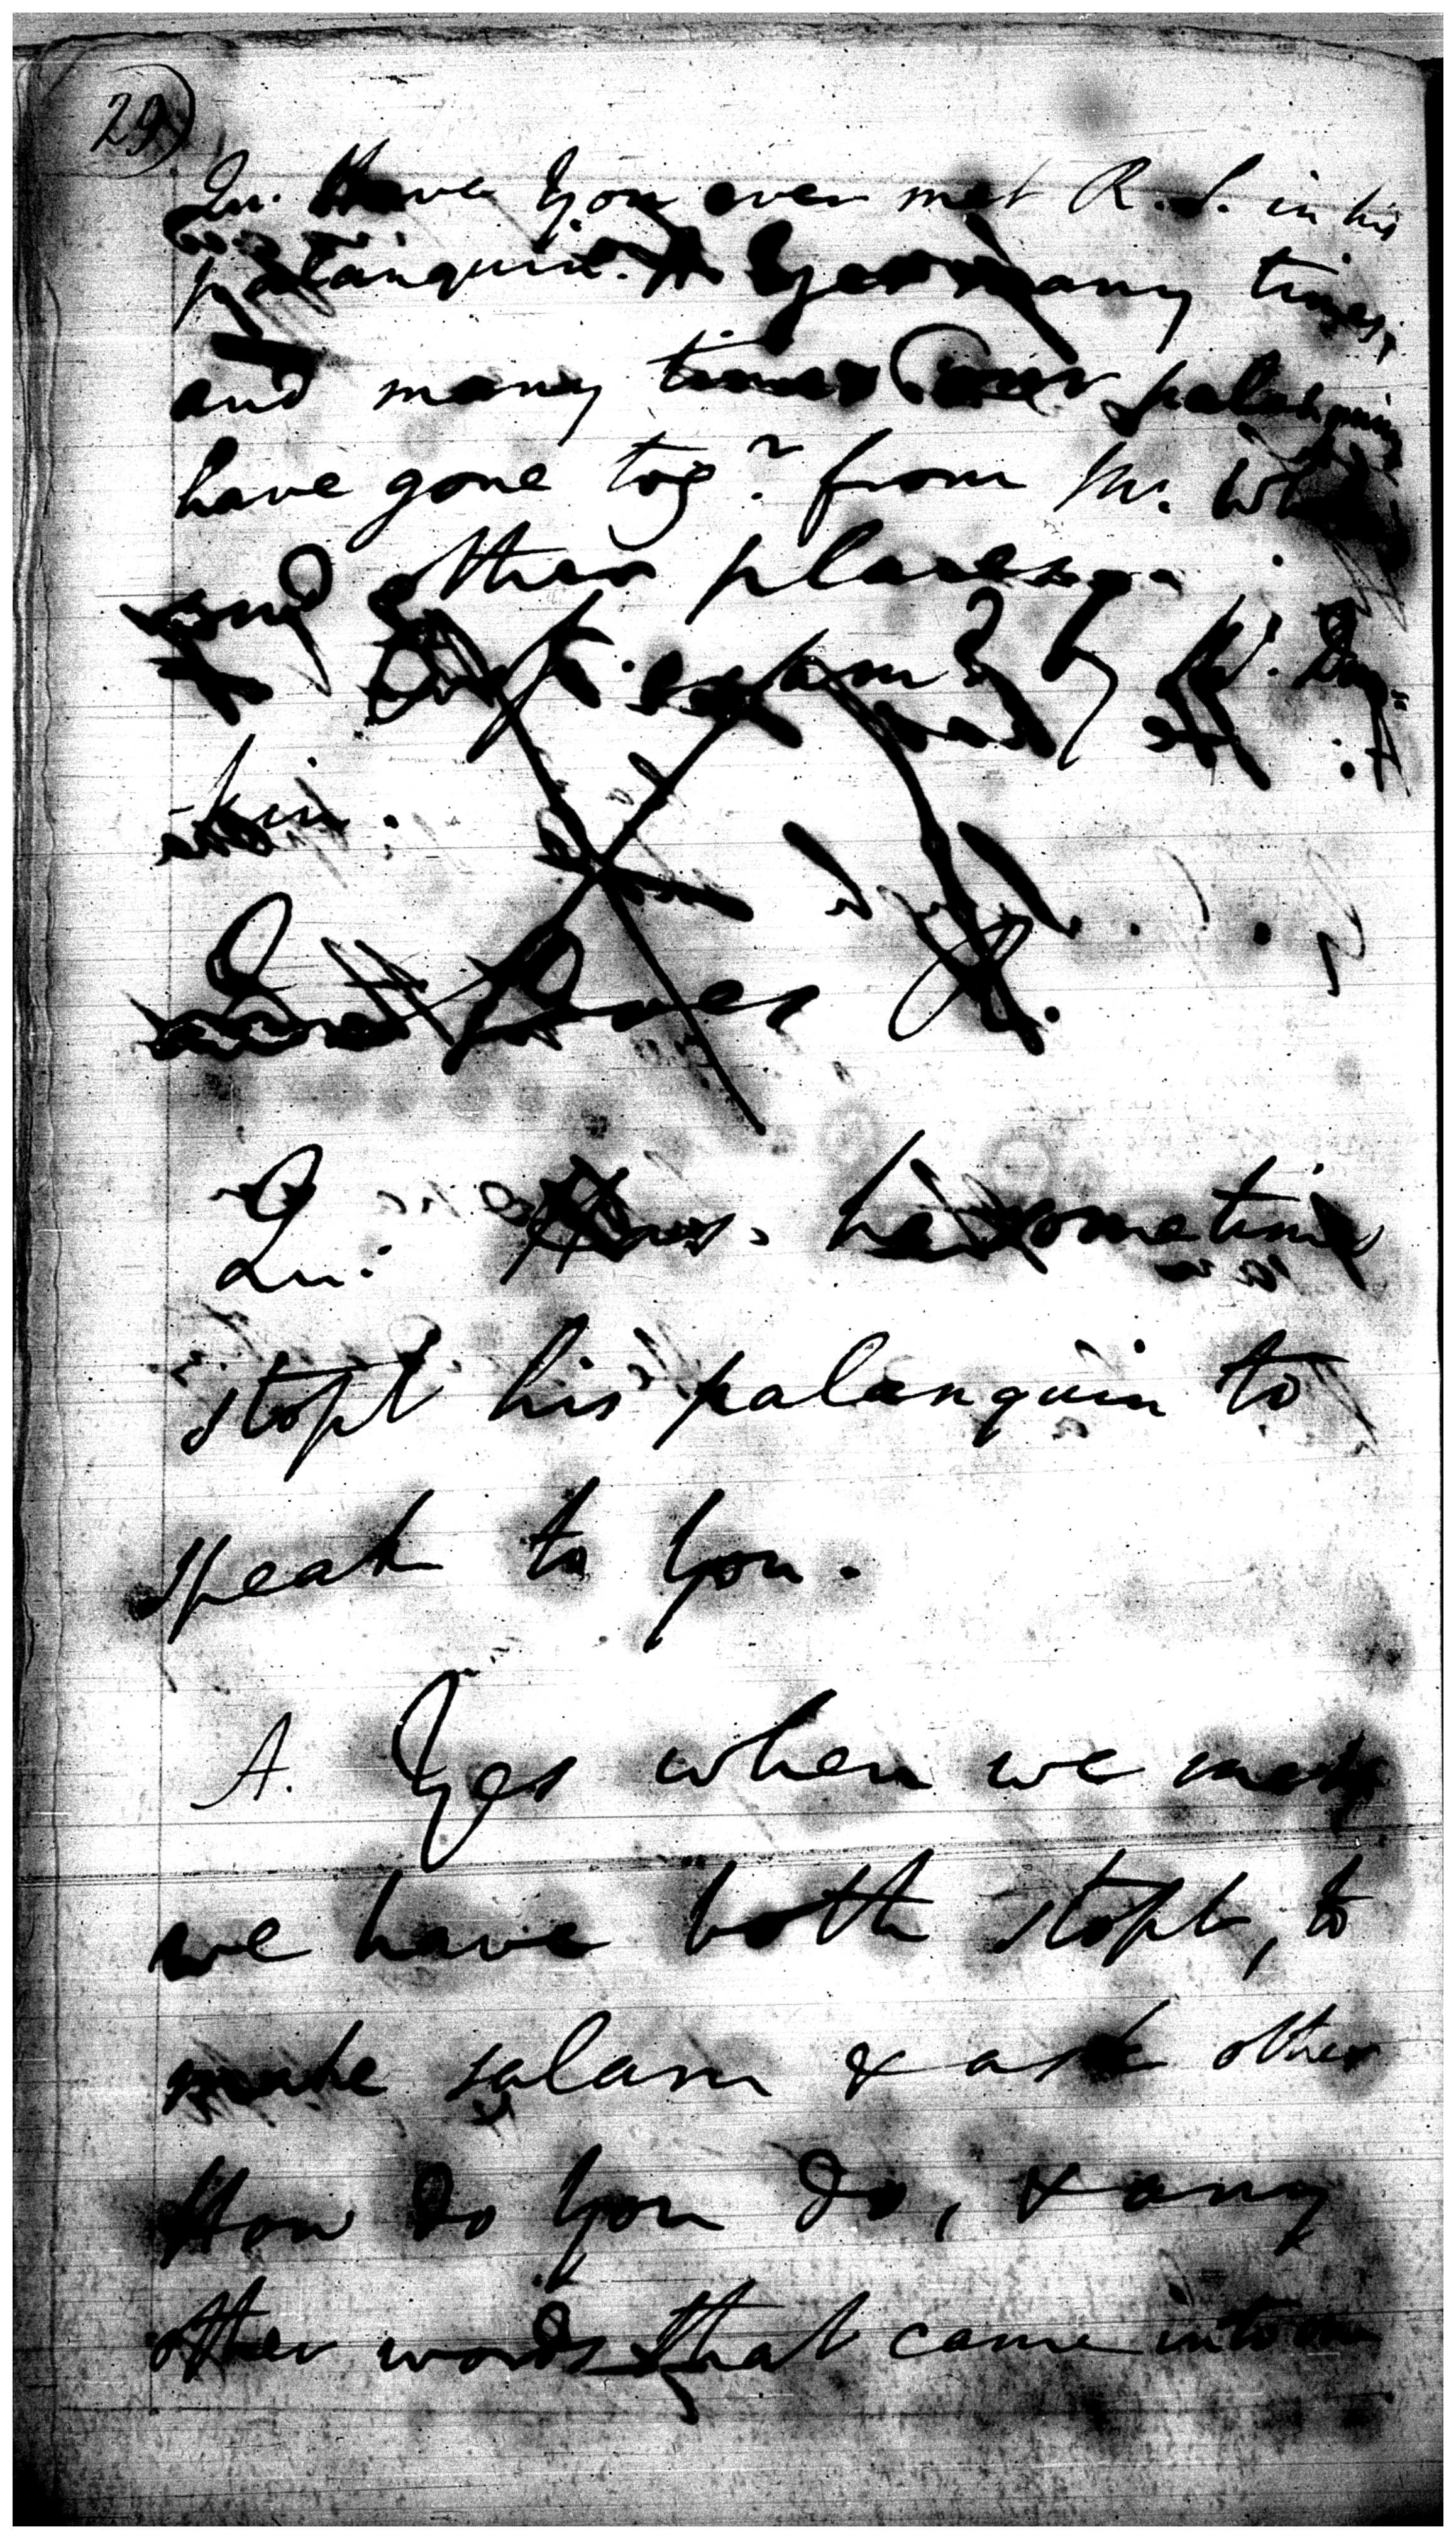 29
Qu. Have You ever met R. S. in his
palanquin. A Yes many times,
and many times our palanquins
have gone tog.r from Mr.
and other places.
by
Qu: Has he sometimes
stopt his palanquin to
speak to You.
A. Yes when we met
we have both stopt, to
make salam & ask other
How do You do, & any
other words that came into our